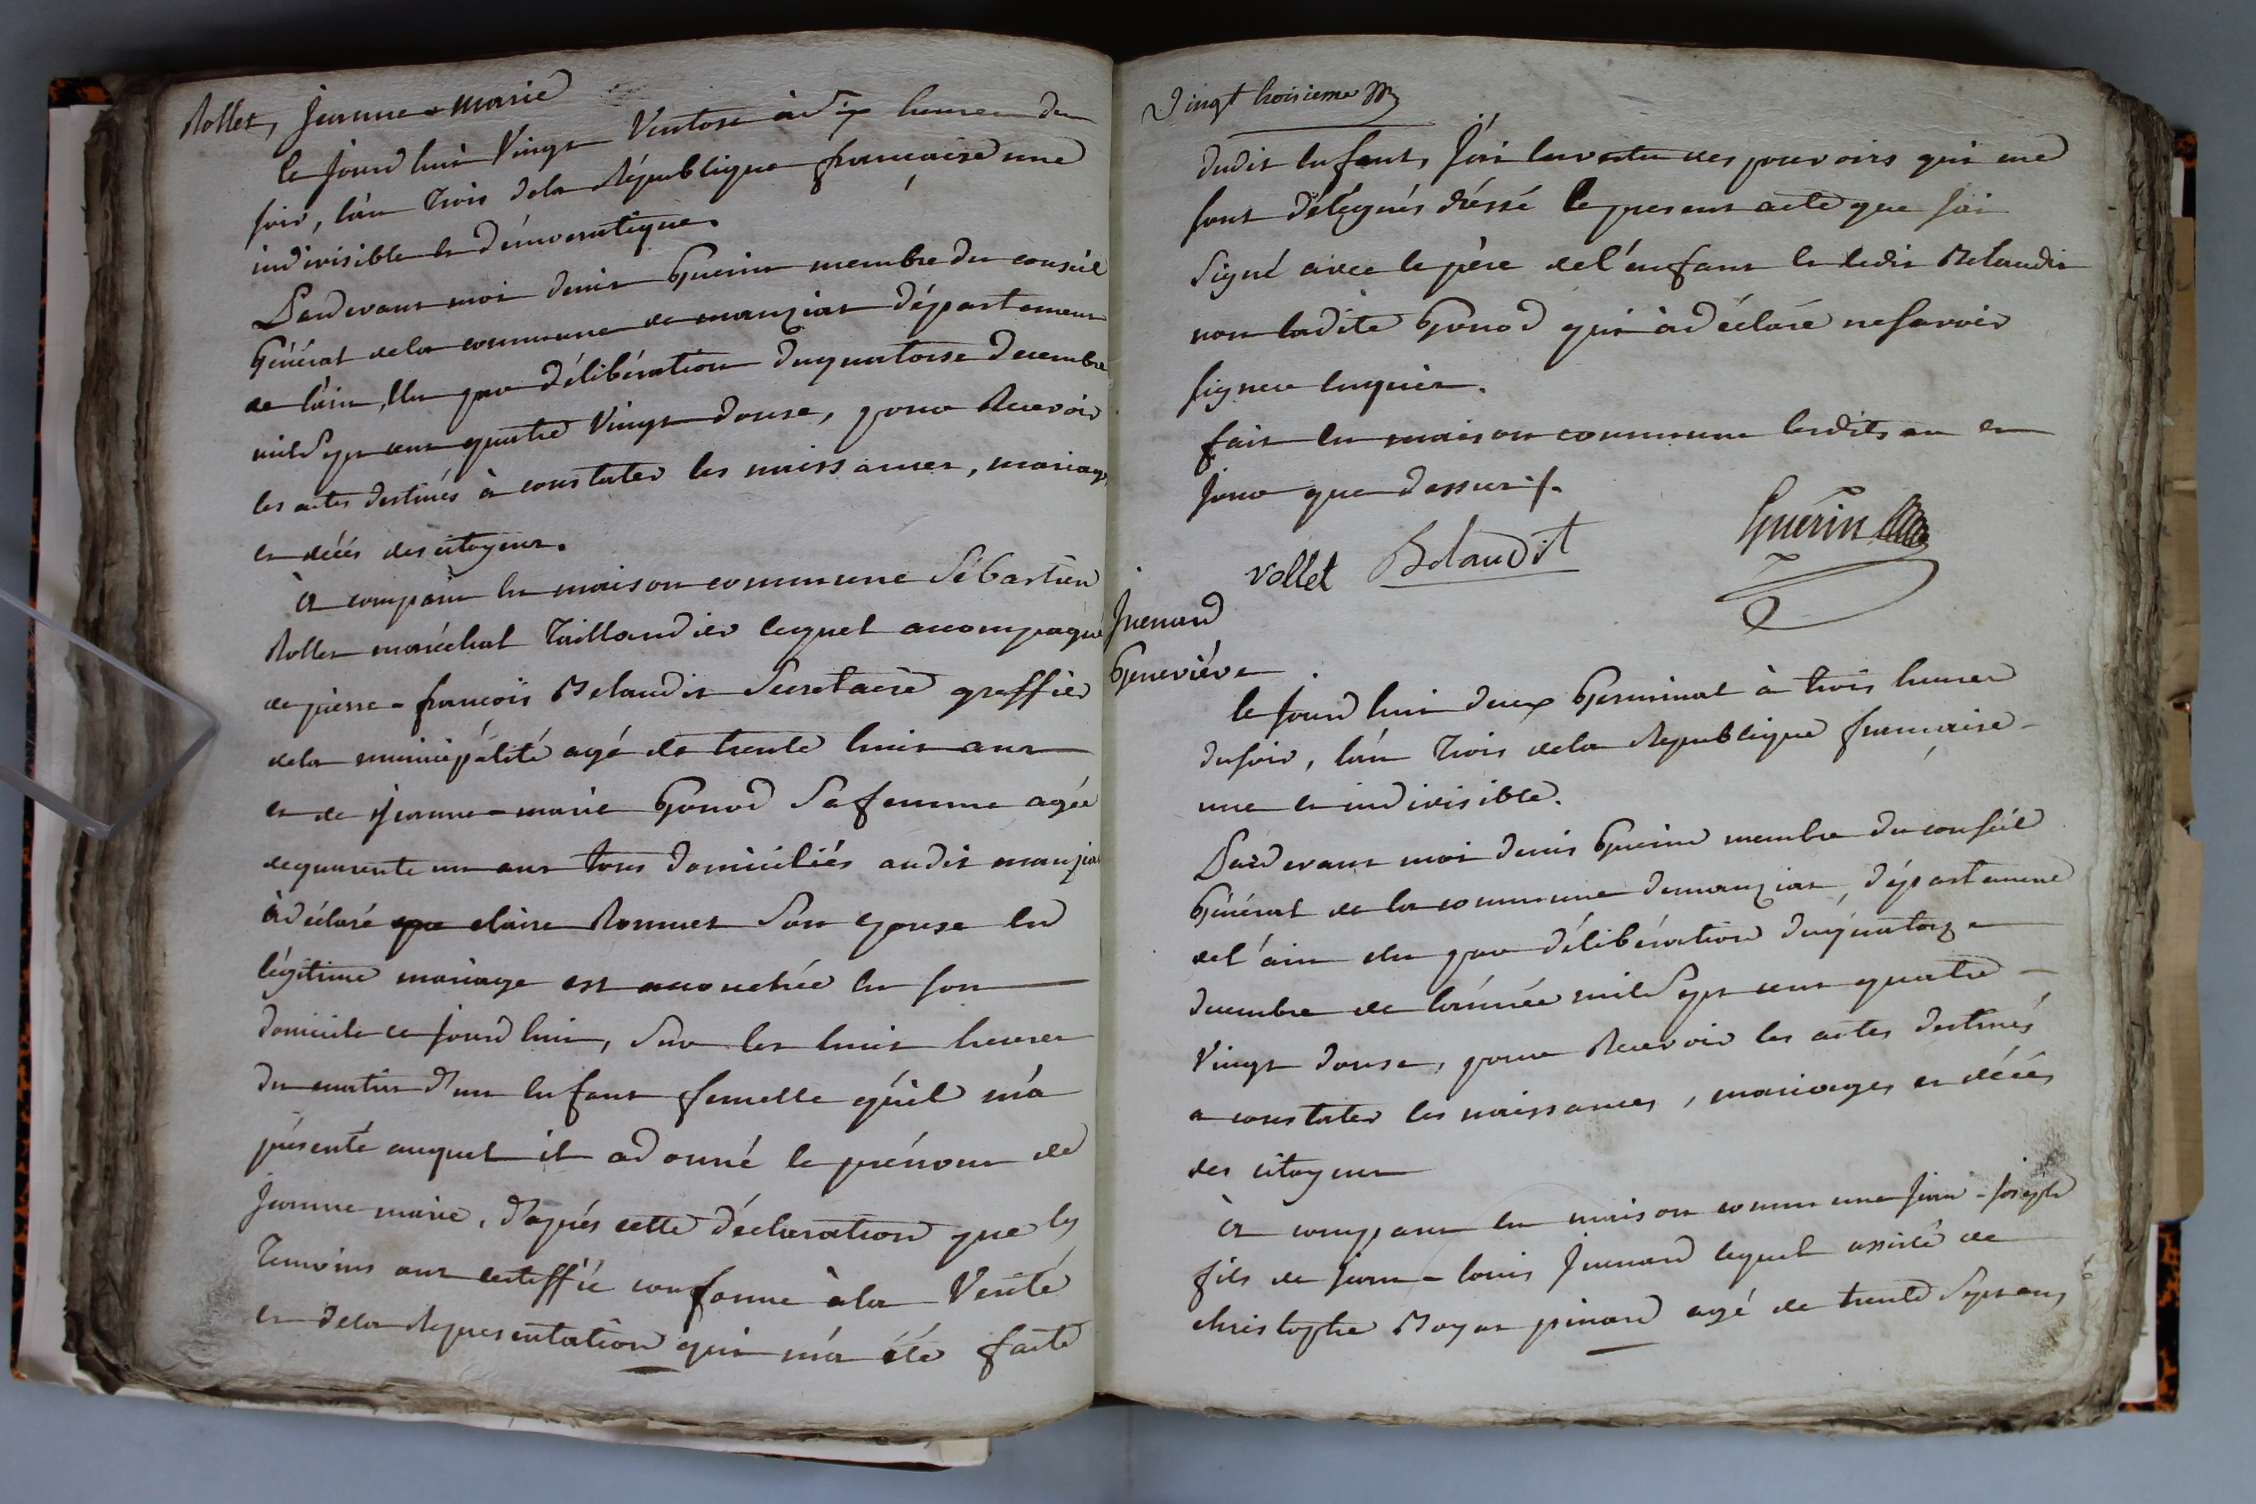 Rollet, Jeanne-marie
Ce jourd'hui vingt Ventose à dix heures du
soir, l'an trois de la République française une
indivisible et démocratique.
Pardevant moi denis Guerin membre du conseil
Général de la commune de manziat département
de l'ain, Elu par délibération du quatorse decembre
mil sept cent quatre vingt douse, pour Recevoir
les actes destinés à constater les naissances, mariages
et décés des citoyens.
à comparu en maison commune Sébastien
Rollet maréchal Taillandier lequel accompagné
de pierre-françois Belaudit Secretaire greffier
de la municipalité agé de trente huit ans
et de Jeanne-marie Gonod Sa femme agée
de quarente un ans tous domiciliés audit manziat
à déclaré que claire Bonnet Son epouse en
légitime mariage est acouchée en son
domicile ce jourd'hui, Sur les huit heures
du matin d'un enfant femelle qu'il m'a
présenté auquel il a donné le prénom de
Jeanne marie, d'après cette déclaration que les
Temoins ont certiffié conforme à la Vérité
et de la Représentation qui m'a été faite
Vingt troisieme
dudit enfant, J'ai en vertu des pouvoirs qui me
sont délégués dréssé le present acte que j'ai
Signé avec le père de l'enfant et ledit Belaudit
non ladite Gonod qui à déclaré ne savoir
signer enquise.
fait en maison commune lesdits an et
jour que dessus ./.
rollet Belaudit Guerin
Juenard
Geneviéve
Ce jourd'hui deux Germinal à trois heures
du soir, l'an trois de la République française
une et indivisible.
Pardevant moi denis Guerin membre du conseil
Général de la commune de manziat, département
de l'ain élu par délibération du quatorze
decembre de l'année mil sept cent quatre
Vingt douse, pour Recevoir les actes destinés
a constater les naissances, mariages et décés
des citoyens
à comparu en maison commune Jean-Joseph
fils de Jean-louis Juenard lequel assisté de
christophe Boyat pinard agé de trente Sept ans